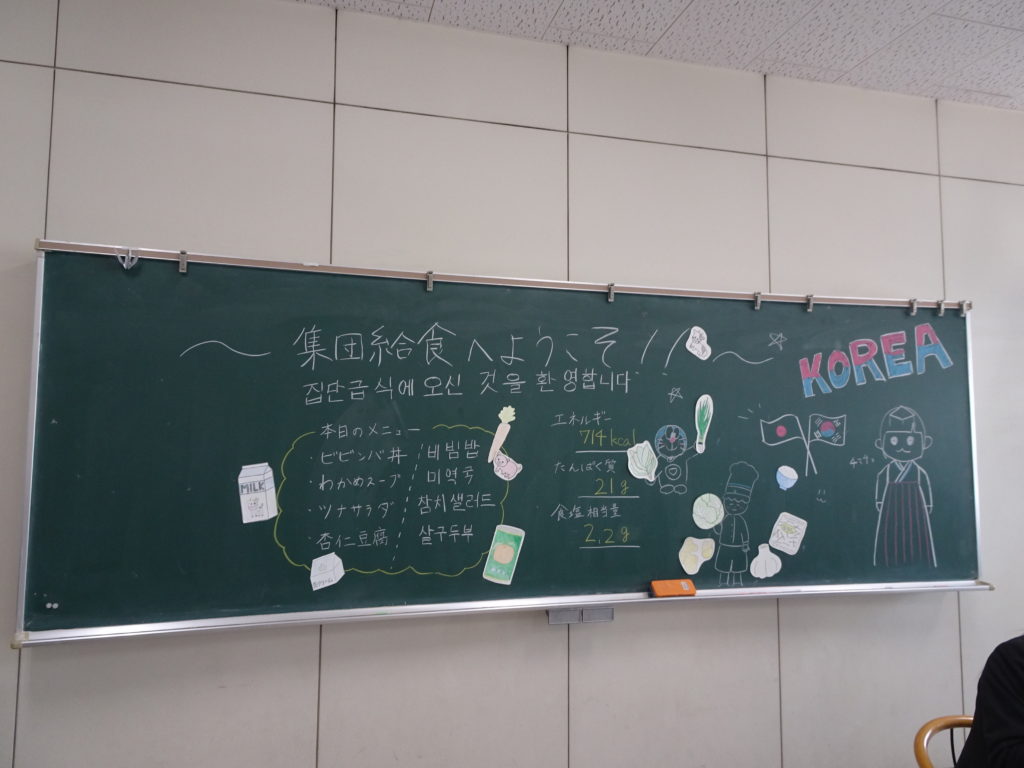 集団給食へようこそ!!
집단급식에 오신 것을 환영합니다
KOREA
本日のメニュー
・ビビンバ丼 비빔밥
・わかめスープ 미역국
・ツナサラダ 참치샐러드
・杏仁豆腐 살구두부
エネルギー
714kcal
たんぱく質
21g
食塩相当量
2.2g
MILK